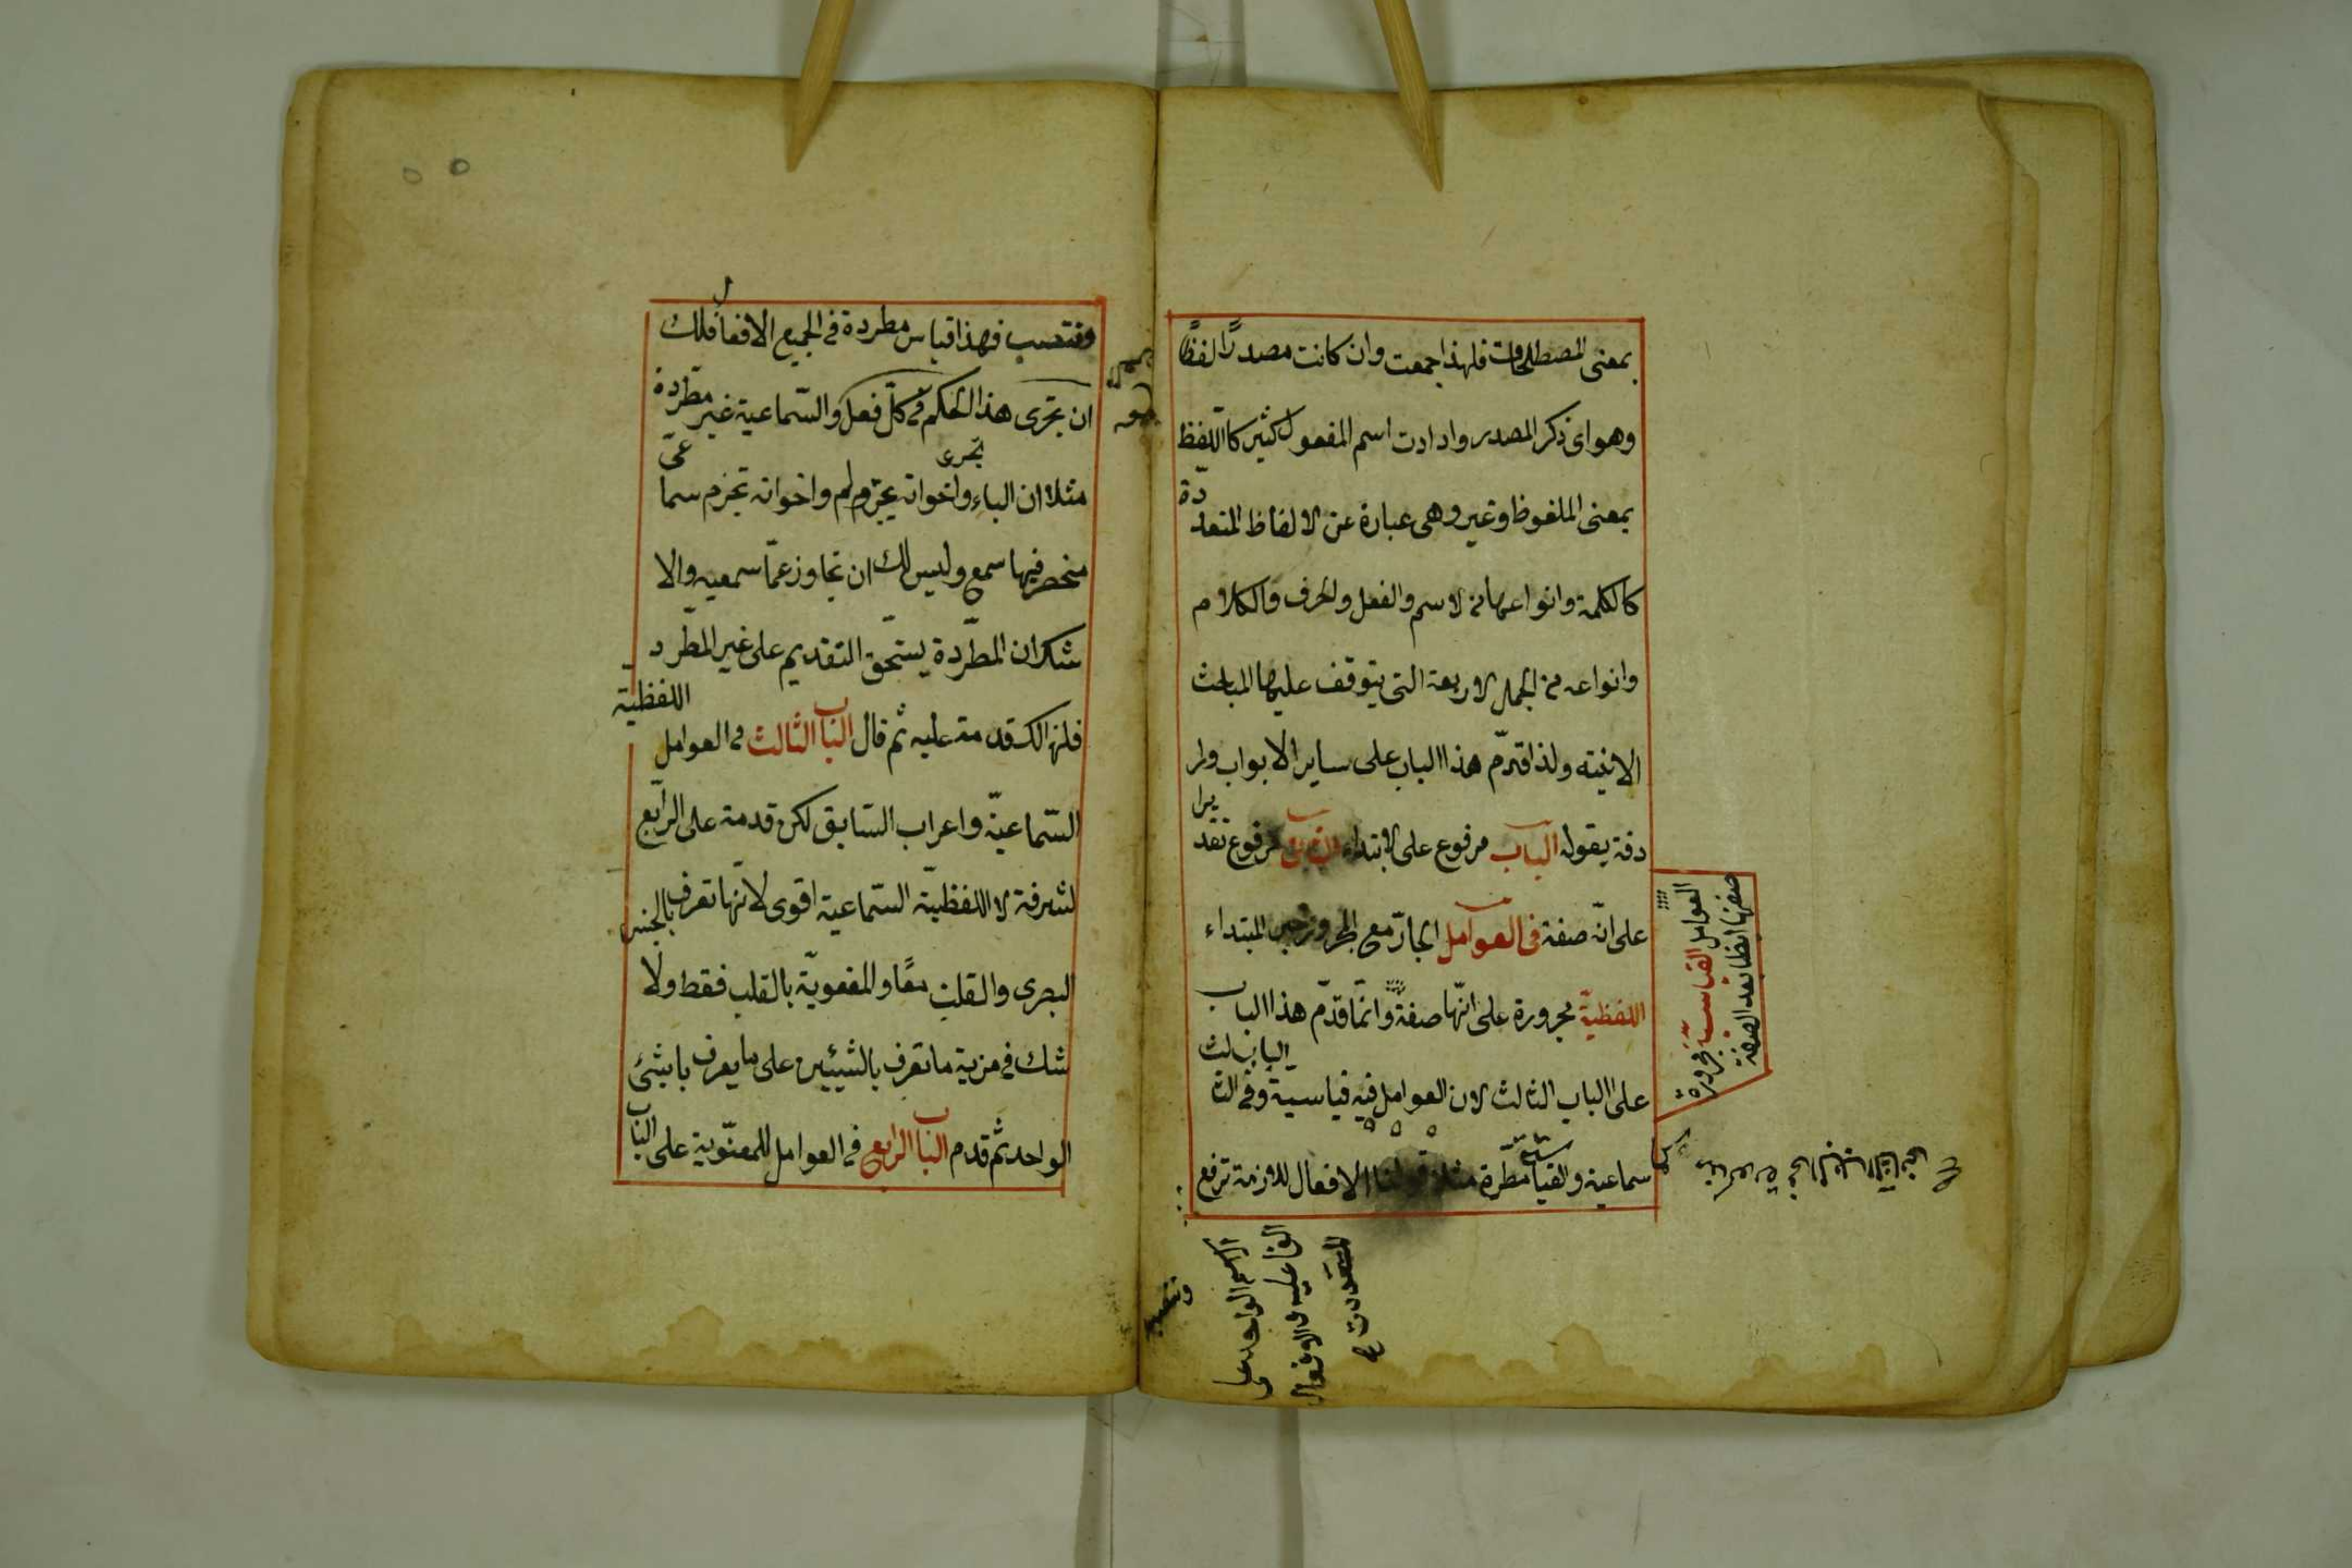 بمعنى المصطلحات فلهذا جمعت وان كانت مصدرًا لفظًا
وهو اى ذكر المصدر وارادت اسم المفعول كثير كاللّفظ
بمعنى الملفوظ وغير وهى عبارة عن الالفاظ المتعددة
كالكلمة وانواعها من الاسم والفعل والحرف والكلام
وانواعه من الجمل الاربعة التى يتوقف عليها المباحث
الاتيته ولذا قدّم هذا الباب على ساير الابواب ولر
دفة بقوله الباب مرفوع على الابتداء الثانى مرفوع تقديرا
على انّه صفة فى العوامل الجارّ مع المجرور خبر المبتداء
اللفظيّة مجرورة على انّها صفةً وانّما قدّم هذا الباب
على الباب الثالث لان العوامل فيه قياسية وفى الباب الثالث
سماعية والقياسية مطّرة مثلا قولنا الافعال اللازمة ترفع
العوامل القياسيّة مجرورة
صفتها ايضا بعد الصفة
الفاعلية والافعال
وتنصب
وتنصب فهذا قياس مطردة فى الجميع الافعال فلك
ان تجرى هذا الحكم فى كلّ فعل والسّماعية غير مطّردة
مثلا ان الباء واخواته تجرّ ولم واخواته تجزم سماعىّ
منحصر فيها سمع وليس لك ان تجاوز عمّا سمعيه والا
شك ان المطّردة يستحّق التقديم على غير المطّرد
فلذالك قدمه عليه ثم قال الباب الثالث فى العوامل اللفظية
السّماعيّة واعراب السّابق لكن قدمه على الرّابع
لشرفة لا اللفظيّة السّماعية اقوى لانّها تعرف بالجنس
البصرى والقلب معًا والمعنويّة بالقلب فقط ولا
شك فى مزية ما تعرف بالشيئين على ما يعرف باشئ
الواحد ثم قدم الباب الرابع فى العوامل المعنّوية على الباب